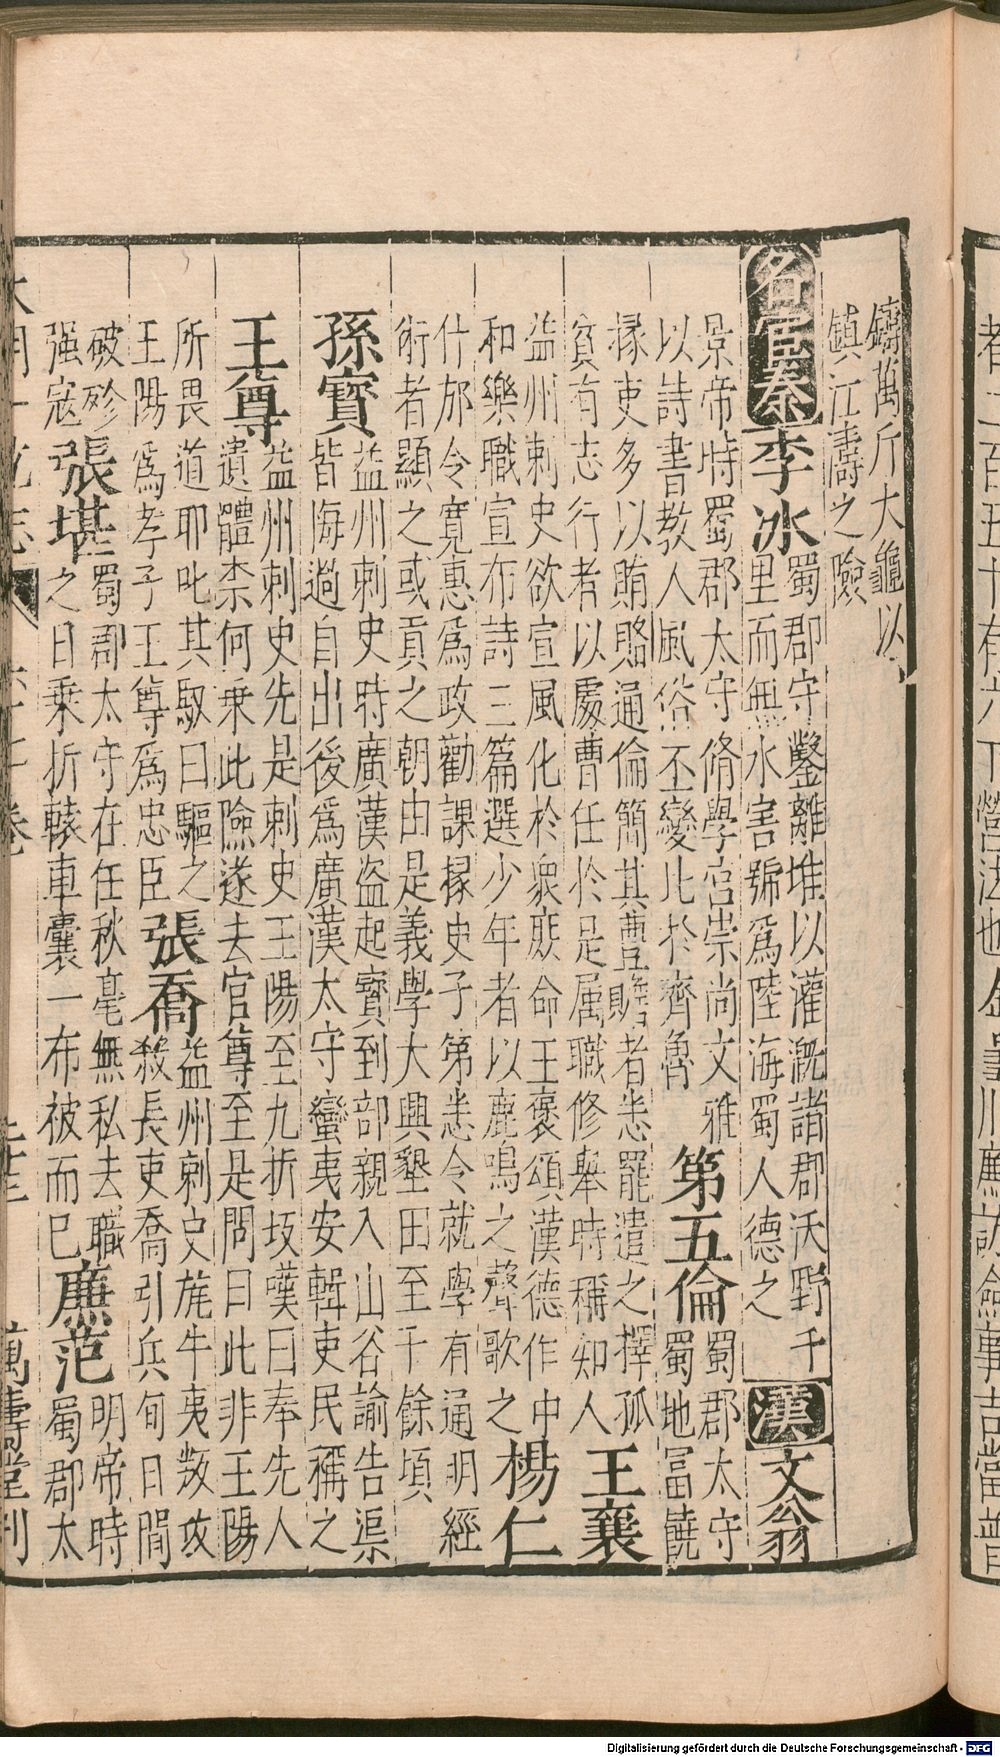 二百五十有六下營法也
川廉訪僉事吉當普
鑄萬斤大龜以
鎮江濤之險
名宦秦李冰
蜀郡守鑿離堆以灌漑諸郡沃野千
里而無水害號爲陸海蜀人德之
漢文翁
景帝時蜀郡太守脩學宮崇尚文雅
以詩書教人風俗丕變比於齊魯
第五倫
蜀郡太守
蜀地冨饒
掾吏多以賄賂通倫簡其豐贍者悉罷遣之擇孤
貧有志行者以處曹任於是属職修舉時稱知人
王襄
益州刺史欲宣風化於衆庶命王褒頌漢德作中
和樂職宣布詩三篇選少年者以鹿鳴之聲歌之
楊仁
什邡令寛惠爲政勸課掾史子第悉令就學有通明經
術者顯之或貢之朝由是義學大興墾田至千餘頃
孫寳
益州刺史時廣漢盗起寳到部親入山谷諭告渠
皆悔過自出後爲廣漢太守蠻夷安輯吏民稱之
王尊
益州刺史先是刺史王陽至九折坂嘆曰奉先人
遺體柰何乗此險遂去官尊至是問曰此非王陽
所畏道耶叱其馭曰驅之
王陽爲孝子王尊爲忠臣
張喬
益州刺史旄牛夷叛攻
殺長吏喬引兵旬日間
破殄
强寇
張堪
蜀郡太守在任秋毫無私去職
之日乗折轅車囊一布被而已
廉范
明帝時
蜀郡太
萬壽堂刊
Digitalisierung gefördert durch die Deutsche Forschungsgemeinschaft - DFG